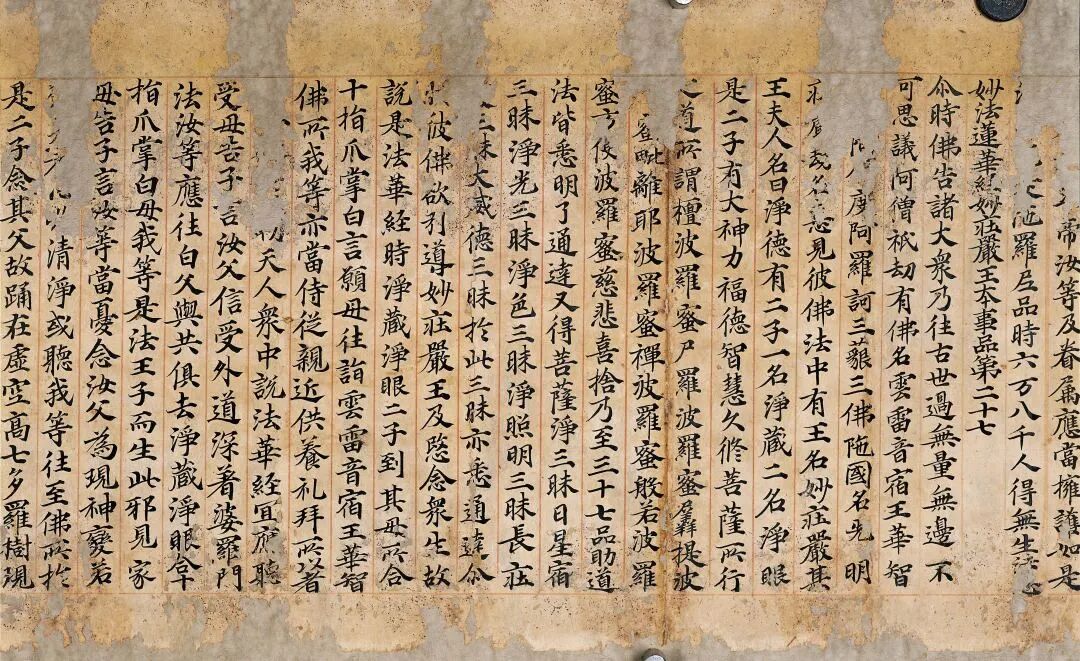 帝汝等及眷属應當擁護如是
陀羅尼品時六万八千人得無生法
妙法蓮華經妙莊嚴王本事品第二十七
尒時佛告諸大衆乃往古世過無量無邊不
可思議阿僧祇劫有佛名雲雷音宿王華智
度阿羅訶三藐三佛陁國名光明
見彼佛法中有王名妙莊嚴其
王夫人名曰淨德有二子一名淨藏二名淨眼
是二子有大神力福德智慧久修菩薩所行
之道所謂檀波羅蜜尸羅波羅蜜羼提波
蜜毗離耶波羅蜜禪波羅蜜般若波羅
蜜方便波羅蜜慈悲喜捨乃至三十七品助道
法皆悉明了通達又得菩薩淨三昧日星宿
三昧淨光三昧淨色三昧淨照明三昧長莊
三昧大威德三昧於此三昧亦悉通達尒
彼佛欲引導妙莊嚴王及愍念衆生故
說是法華經時淨藏淨眼二子到其母所合
十指爪掌白言願母往詣雲雷音宿王華智
佛所我等亦當侍從親近供養礼拜所以者
切天人衆中說法華經宜應聽
受母告子言汝父信受外道深著婆羅門
法汝等應往白父與共俱去淨藏淨眼合
指爪掌白母我等是法王子而生此邪見家
母告子言汝等當憂念汝父為現神變若
清淨或聽我等往至佛所於
是二子念其父故踊在虛空高七多羅樹現